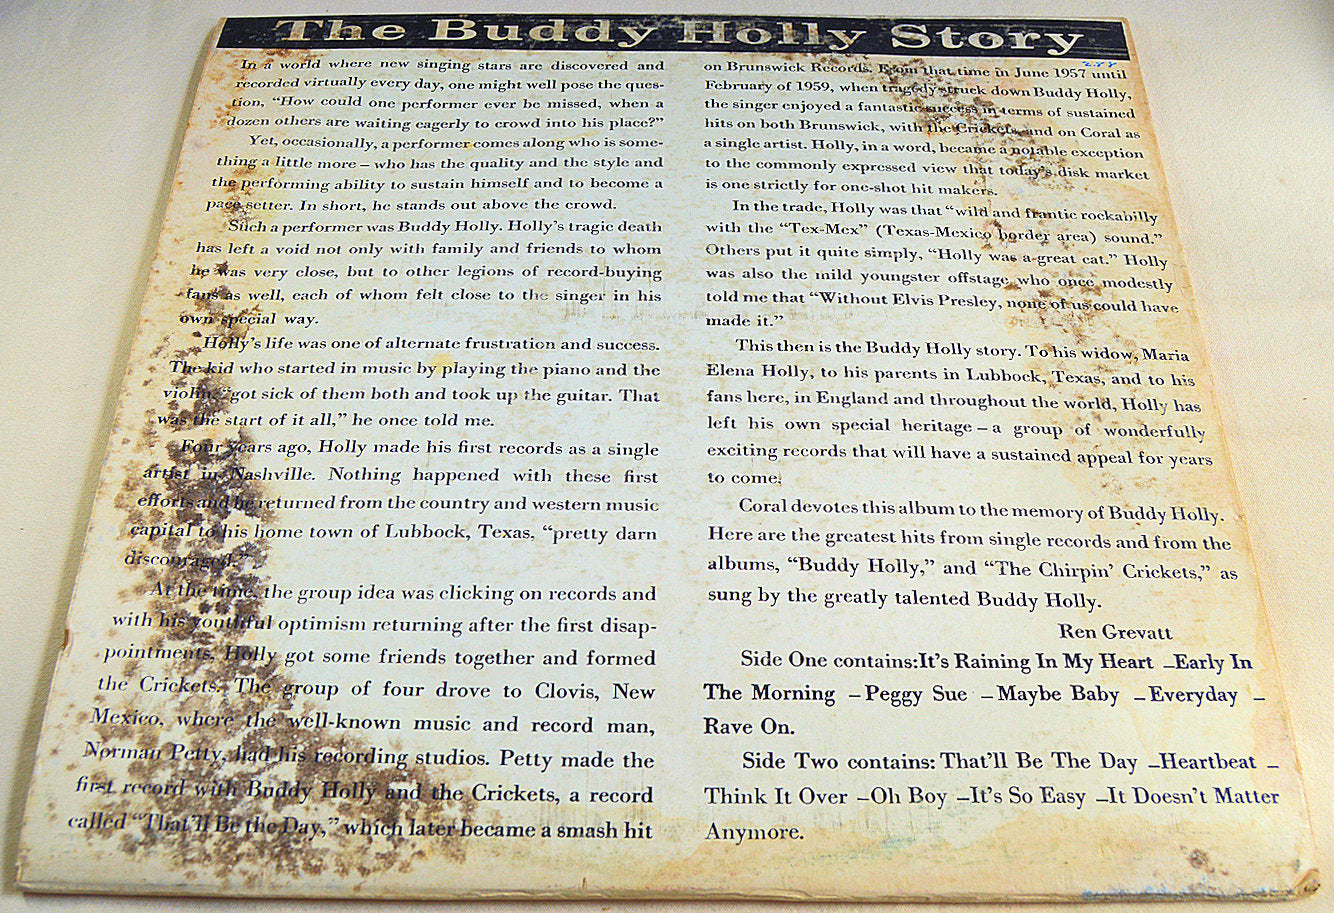 The Buddy Holly Story
In a world where new singing stars are discovered and
recorded virtually every day, one might well pose the ques-
tion, “How could one performer ever be missed, when a
dozen others are waiting eagerly to crowd into his place?”
Yet, occasionally, a performer comes along who is some-
thing a little more – who has the quality and the style and
the performing ability to sustain himself and to become a
pace setter. In short, he stands out above the crowd.
Such a performer was Buddy Holly. Holly’s tragic death
has left a void not only with family and friends to whom
he was very close, but to other legions of record-buying
fans as well, each of whom felt close to the singer in his
own special way.
Holly’s life was one of alternate frustration and success.
The kid who started in music by playing the piano and the
violin, “got sick of them both and took up the guitar. That
was the start of it all,” he once told me.
Four years ago, Holly made his first records as a single
artist in Nashville. Nothing happened with these first
efforts and he returned from the country and western music
capital to his home town of Lubbock, Texas, “pretty darn
discouraged.”
At the time, the group idea was clicking on records and
with his youthful optimism returning after the first disap-
pointments, Holly got some friends together and formed
the Crickets. The group of four drove to Clovis, New
Mexico, where the well-known music and record man,
Norman Petty, had his recording studios. Petty made the
first record with Buddy Holly and the Crickets, a record
called “That’ll Be the Day,” which later became a smash hit
2.88
on Brunswick Records. From that time in June 1957 until
February of 1959, when tragedy struck down Buddy Holly,
the singer enjoyed a fantastic success in terms of sustained
hits on both Brunswick, with the Crickets, and on Coral as
a single artist. Holly, in a word, became a notable exception
to the commonly expressed view that today’s disk market
is one strictly for one-shot hit makers.
In the trade, Holly was that “wild and frantic rockabilly
with the “Tex-Mex” (Texas-Mexico border area) sound.”
Others put it quite simply, “Holly was a great cat.” Holly
was also the mild youngster offstage who once modestly
told me that “Without Elvis Presley, none of us could have
made it.”
This then is the Buddy Holly story. To his widow, Maria
Elena Holly, to his parents in Lubbock, Texas, and to his
fans here, in England and throughout the world, Holly has
left his own special heritage – a group of wonderfully
exciting records that will have a sustained appeal for years
to come.
Coral devotes this album to the memory of Buddy Holly.
Here are the greatest hits from single records and from the
albums, “Buddy Holly,” and “The Chirpin’ Crickets,” as
sung by the greatly talented Buddy Holly.
Ren Grevatt
Side One contains: It’s Raining In My Heart – Early In
The Morning – Peggy Sue – Maybe Baby – Everyday –
Rave On.
Side Two contains: That’ll Be The Day – Heartbeat –
Think It Over – Oh Boy – It’s So Easy – It Doesn’t Matter
Anymore.